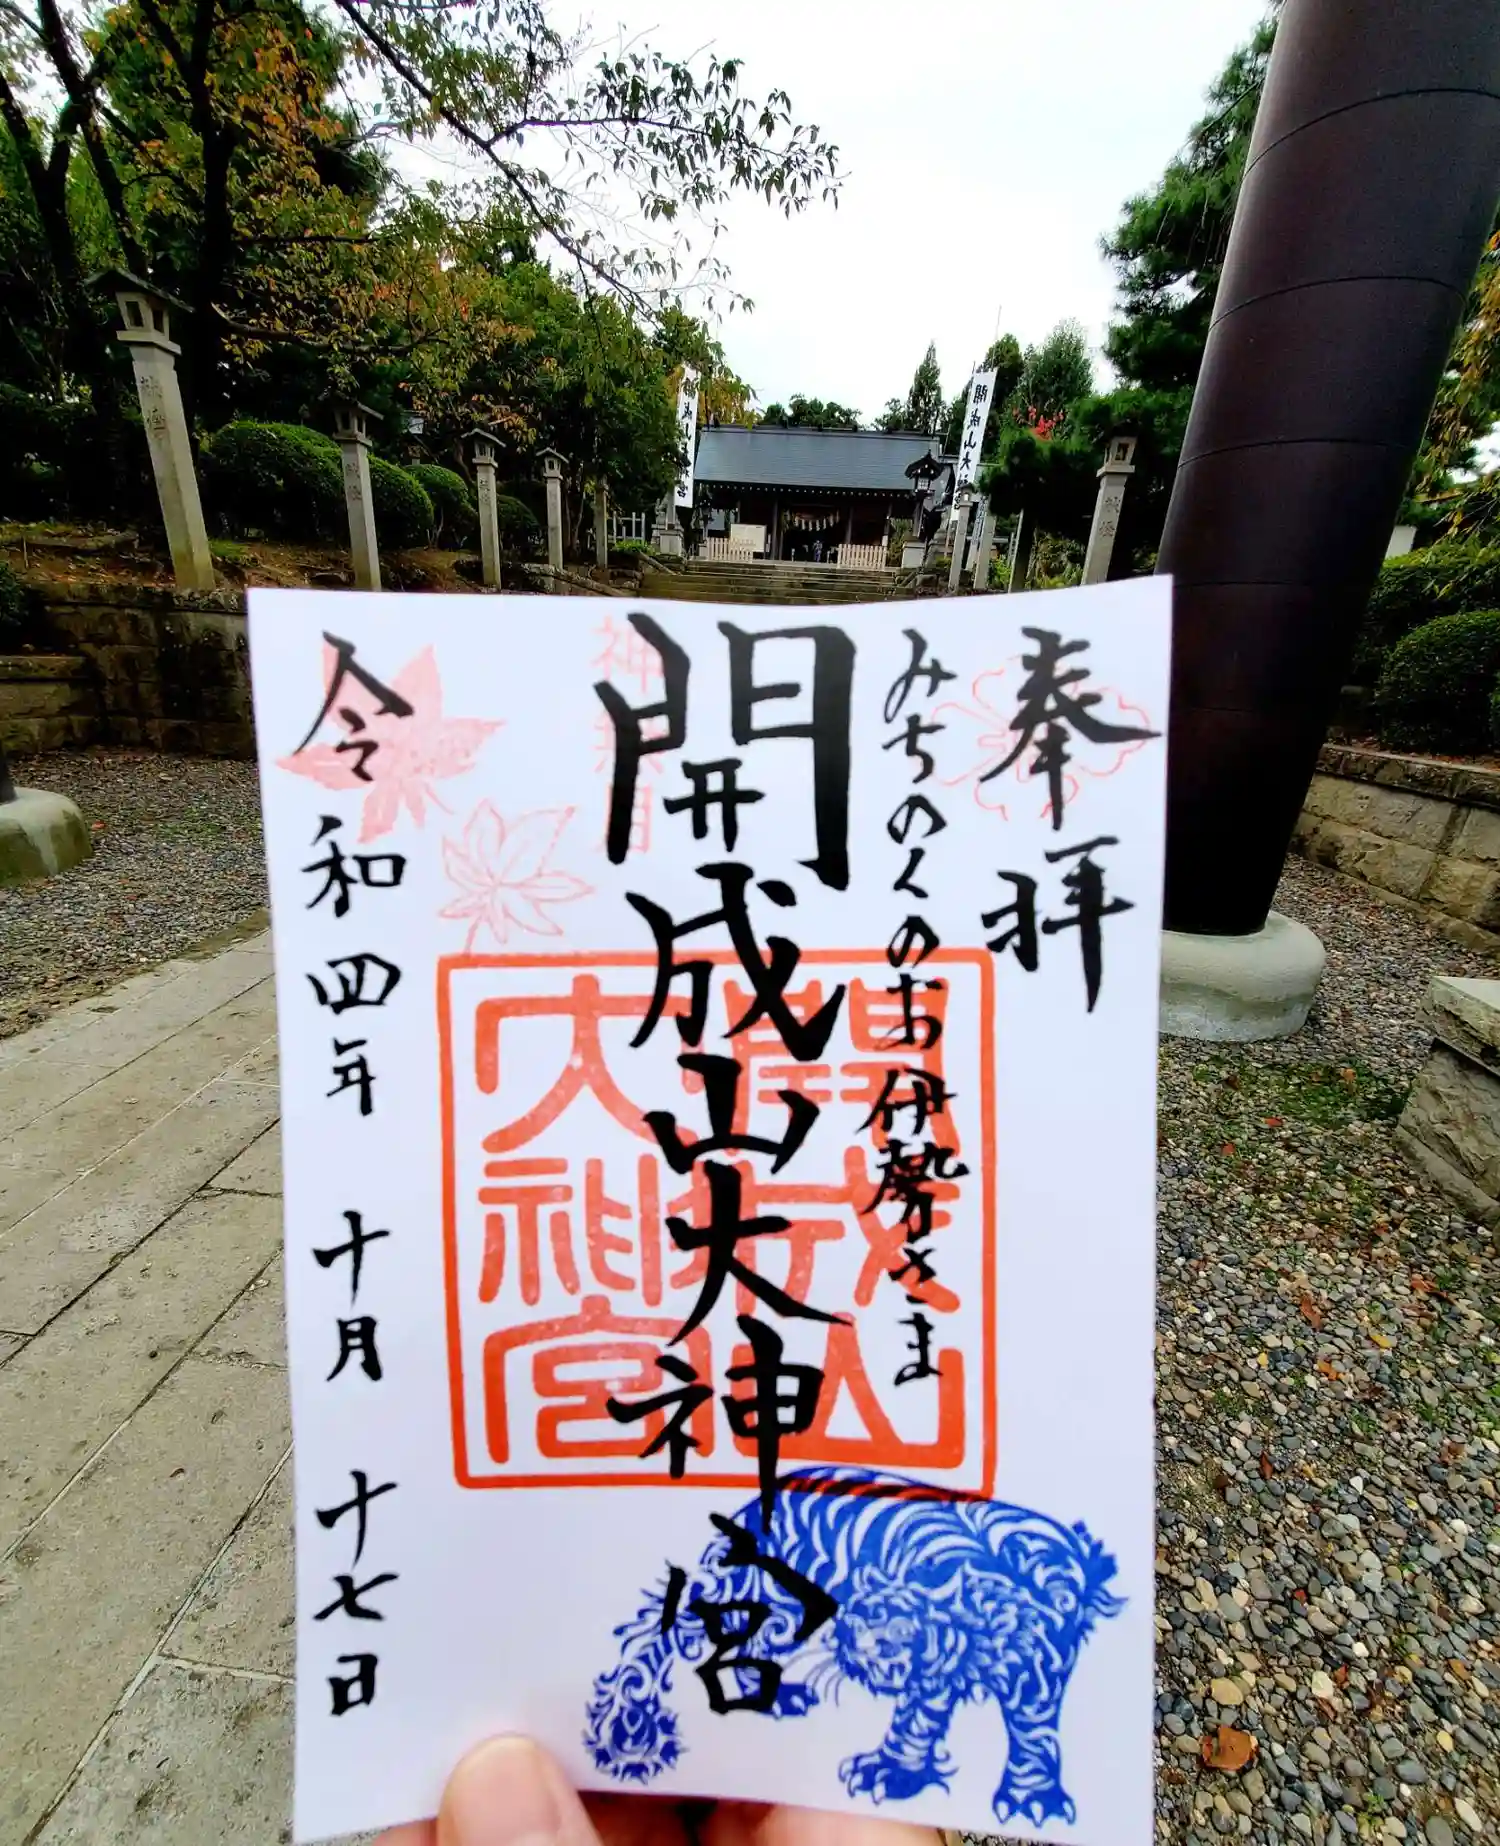 奉拝
みちのくのお伊勢さま
開成山大神宮
神無月
令和四年 十月 十七日
開成山
大神宮
開成山大神宮
献燈